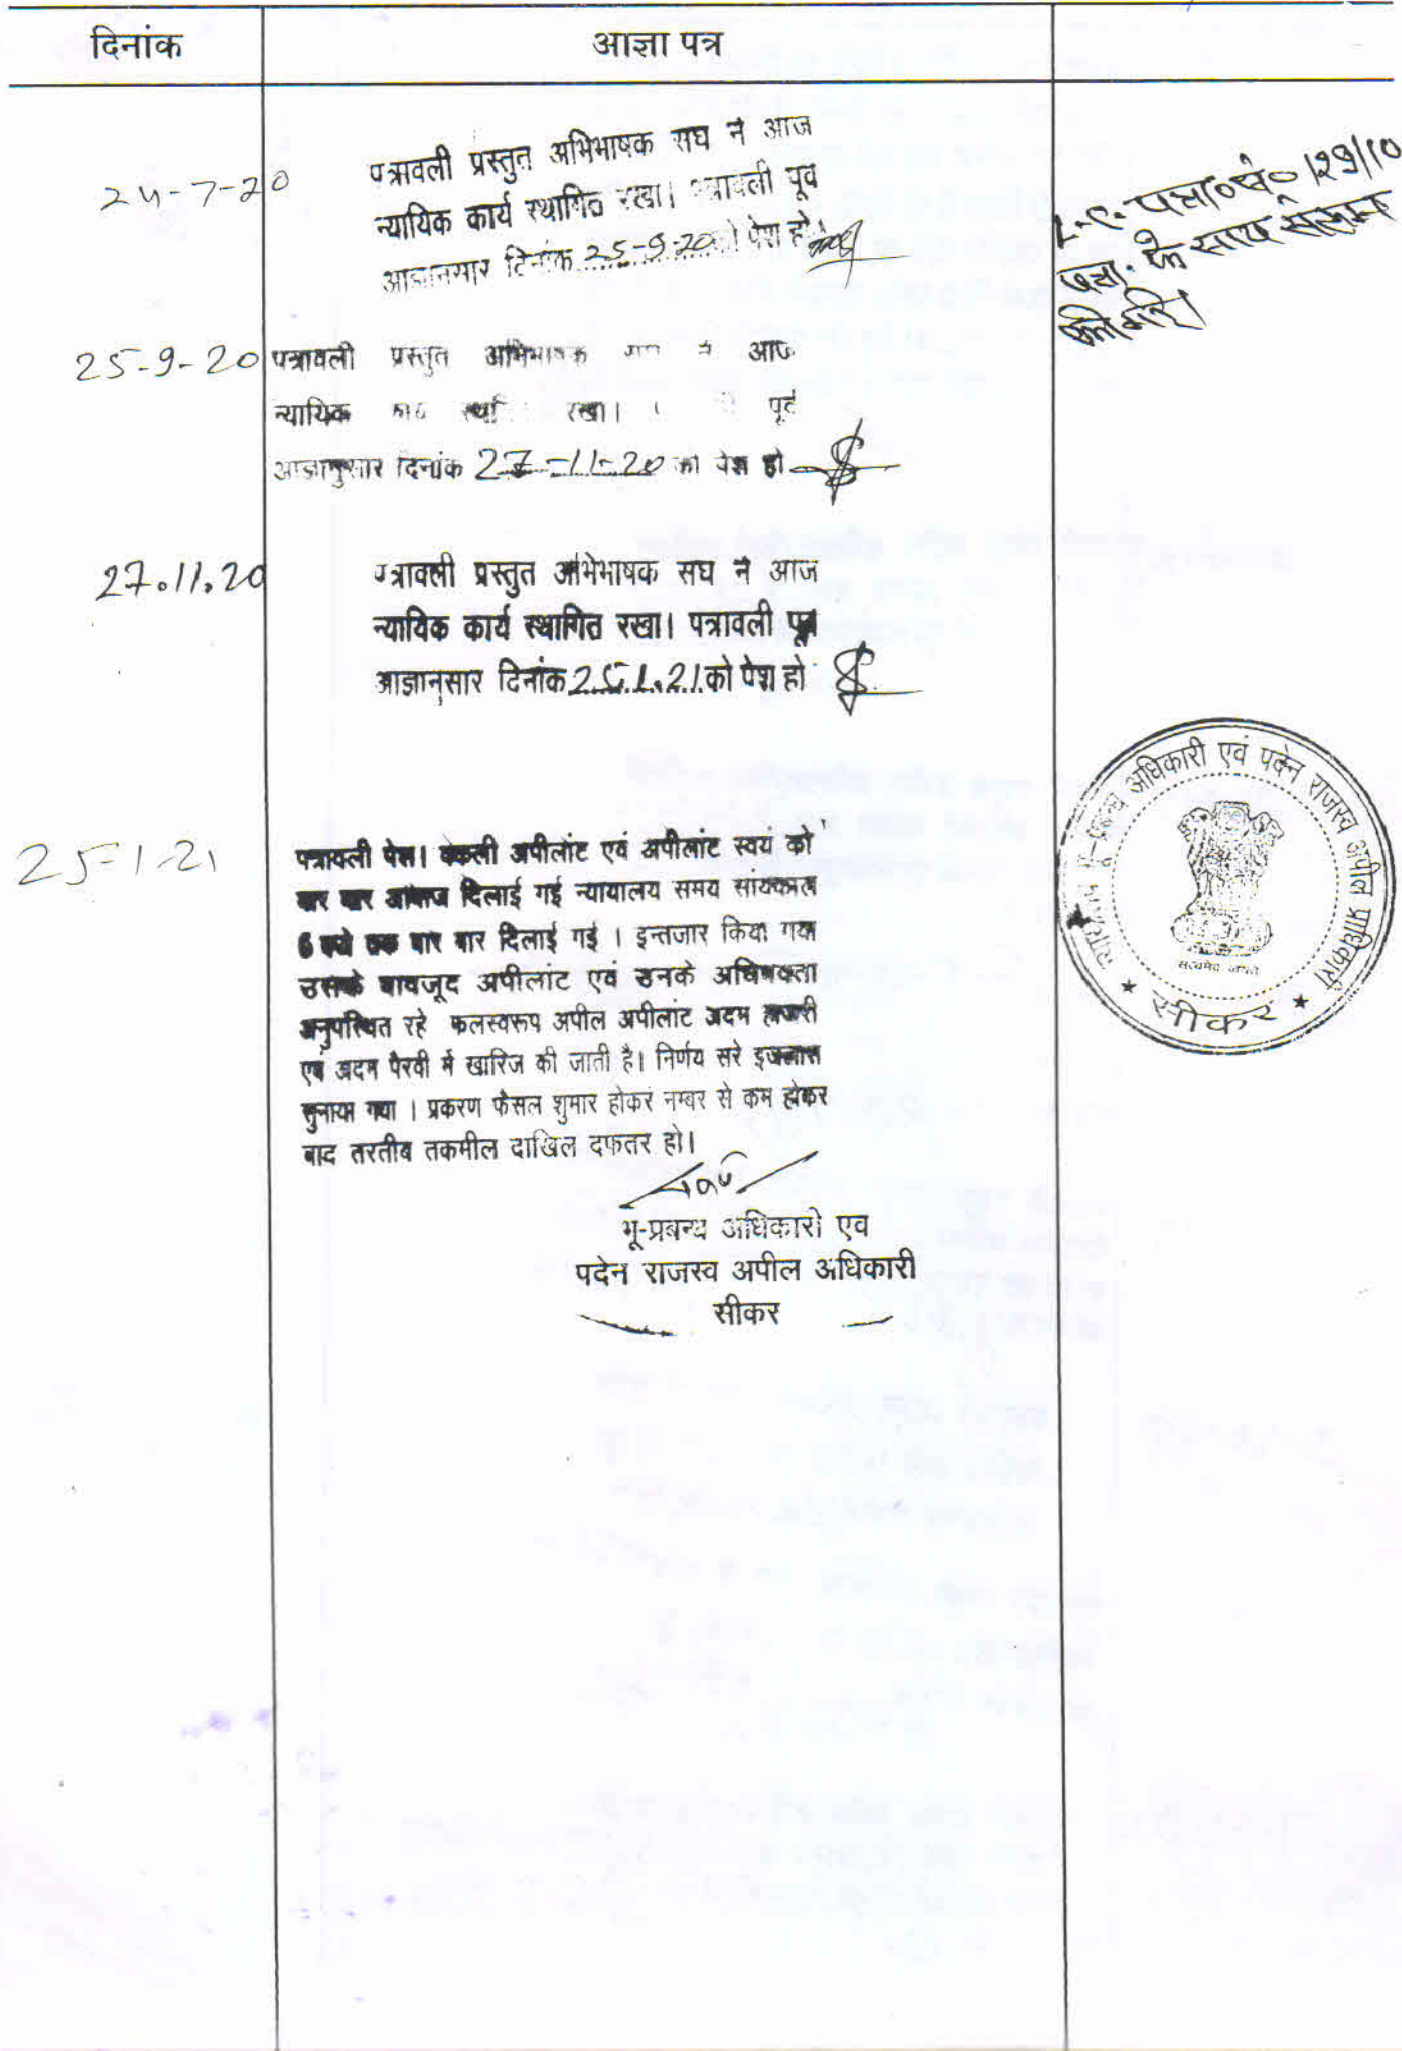 दिनांक
आज्ञा पत्र
24-7-20
पत्रावली प्रस्तुत अभिभाषक संघ ने आज
न्यायिक कार्य स्थागित रखा। पत्रावली पूव
आज्ञानुसार दिनांक 25-9-20 को पेश हो
L.R. पत्रा०सं० 129/10
पत्रा. के साथ संलग्न
25-9-20
पत्रावली प्रस्तुत अभिभाषक ने आज
न्यायिक कार्य स्था रखा। पूर्व
आज्ञानुसार दिनांक 27-11-20 को पेश हो
27.11.20
पत्रावली प्रस्तुत अभिभाषक संघ ने आज
न्यायिक कार्य स्थागित रखा। पत्रावली पूव
आज्ञानुसार दिनांक 25.1.21 को पेश हो
25-1-21
पत्रावली पेश। वकली अपीलांट एवं अपीलांट स्वयं को
बार बार आवाज दिलाई गई न्यायालय समय सांयकाल
6 बजे तक बार बार दिलाई गई । इन्तजार किया गया
उसके बावजूद अपीलांट एवं उनके अधिवक्ता
अनुपस्थित रहे फलस्वरूप अपील अपीलांट अदम हाजरी
एवं अदम पैरवी में खारिज की जाती है। निर्णय सरे इजलास
सुनाया गया । प्रकरण फैसल शुमार होकर नम्बर से कम होकर
बाद तरतीब तकमील दाखिल दफतर हो।
भू-प्रबन्ध अधिकारी एव
पदेन राजस्व अपील अधिकारी
सीकर
न्यायालय भू-प्रबन्ध अधिकारी एवं पदेन राजस्व अपील प्राधिकारी
सत्यमेव जयते
★ सीकर ★